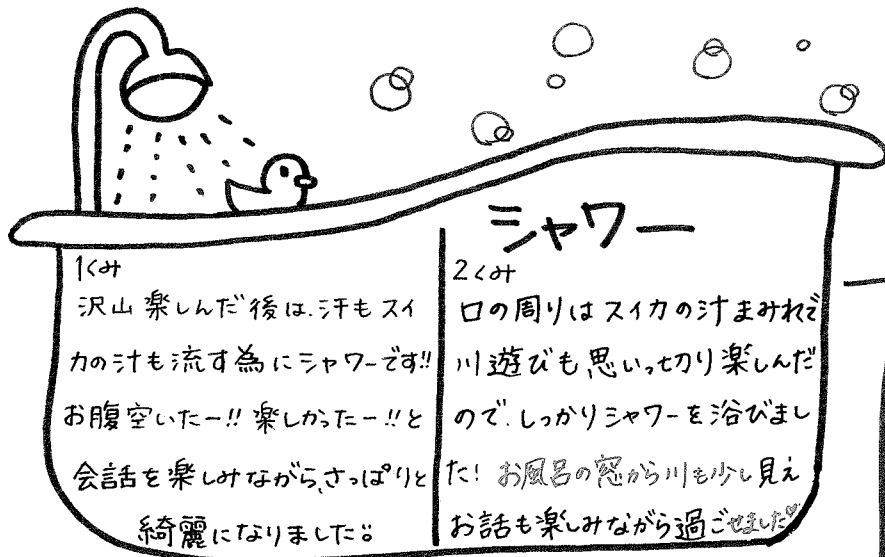 シャワー
1くみ
沢山楽しんだ後は、汗もスイ
カの汁も流す為にシャワーです!!
お腹空いたー!!楽しかったー!!と
会話を楽しみながら、さっぱりと
綺麗になりました。
2くみ
口の周りはスイカの汁まみれで
川遊びも、思いっ切り楽しんだ
ので、しっかりシャワーを浴びまし
た!お風呂の窓から川も少し見え
お話も楽しみながら過ごせました♡